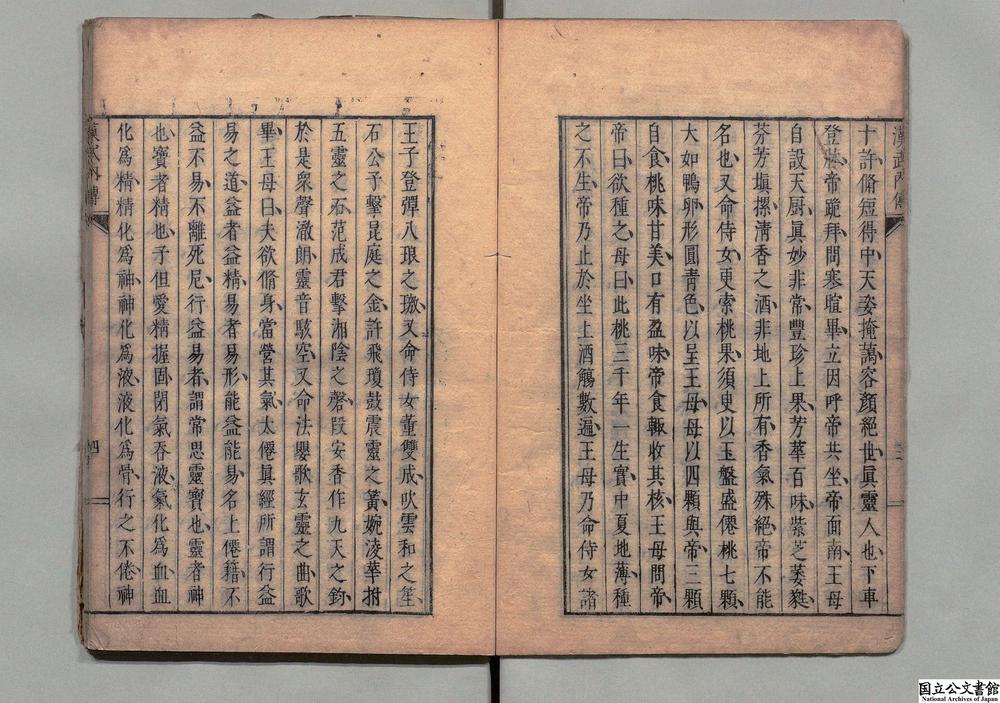 漢武內傳
十許脩短得中天姿掩藹容顏絕世眞靈人也下車
登牀帝跪拜問寒暄畢立因呼帝共坐帝面南王母
自設天厨眞妙非常豐珍上果芳華百味紫芝萎蕤
芬芳塡摞淸香之酒非地上所有香氣殊絕帝不能
名也又命侍女更索桃果須臾以玉盤盛僊桃七顆
大如鴨卵形圓靑色以呈王母母以四顆與帝三顆
自食桃味甘美口有盈味帝食輙收其核王母問帝
帝曰欲種之母曰此桃三千年一生實中夏地薄種
之不生帝乃止於坐上酒觴數遍王母乃命侍女諸
三
王子登彈八琅之璈又命侍女董雙成吹雲和之笙
石公子擊昆庭之金許飛瓊鼓震靈之簧婉淩華拊
五靈之石范成君擊湘陰之磬叚安香作九天之鈞
於是衆聲澈朗靈音駭空又命法嬰歌玄靈之曲歌
畢王母曰夫欲脩身當營其氣太僊眞經所謂行益
易之道益者益精易者易形能益能易名上僊籍不
益不易不離死厄行益易者謂常思靈寶也靈者神
也寶者精也子但愛精握固閉氣吞液氣化爲血血
化爲精精化爲神神化爲液液化爲骨行之不倦神
漢武內傳
四
国立公文書館
National Archives of Japan